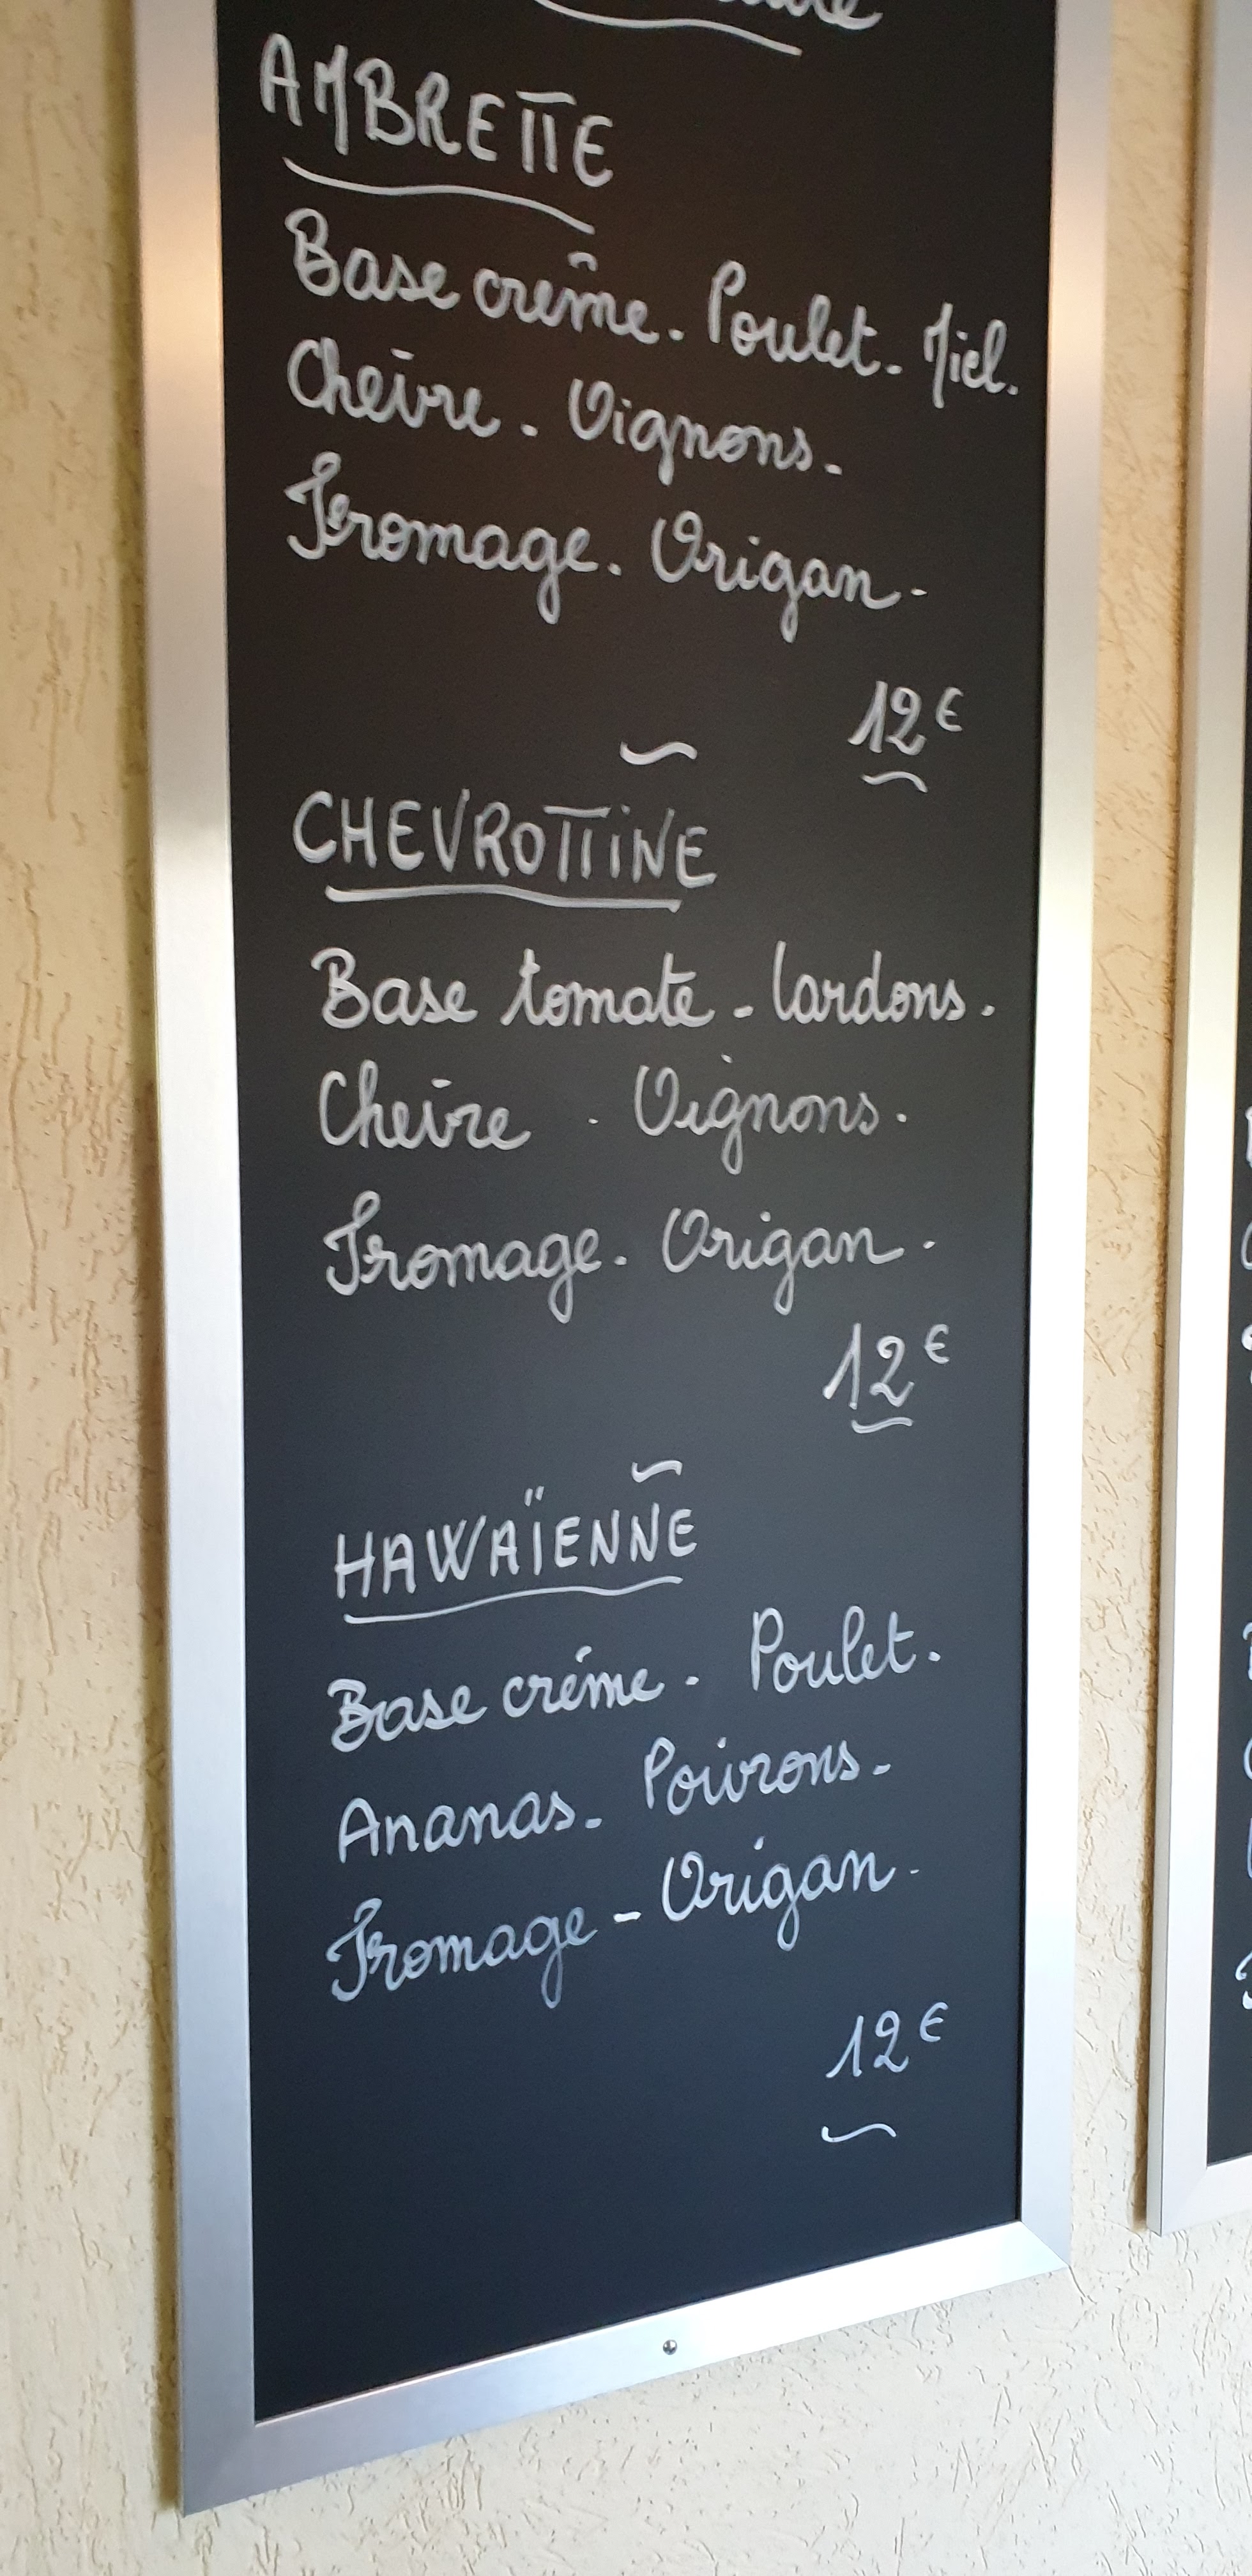 AMBRETTE
Base crème. Poulet. Miel.
Chèvre. Oignons.
Fromage. Origan.
12€
CHEVROTTINE
Base tomate. lardons.
Chèvre. Oignons.
Fromage. Origan.
12€
HAWAÏENNE
Base crème. Poulet.
Ananas. Poivrons.
Fromage - Origan.
12€